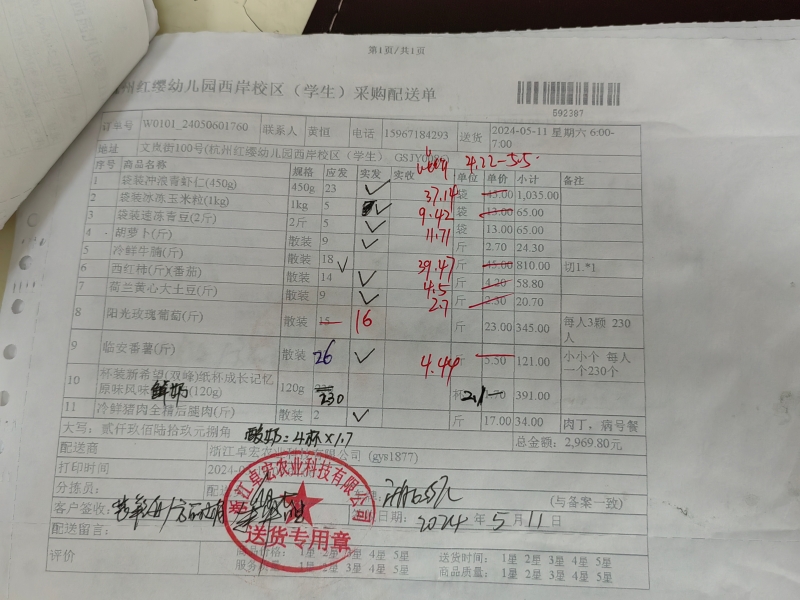 第1页/共1页
杭州红缨幼儿园西岸校区（学生）采购配送单
592307
订单号 W0101_24050601760 联系人 黄桓 电话 15967184293 送货 2024-05-11 星期六 6:00-7:00
地址 文岚街100号(杭州红缨幼儿园西岸校区（学生） 4.22-5.5
序号 商品名称 规格 应发 实发 实收 单位 单价 小计 备注
1 袋装冲浪青虾仁(450g) 450g 23 ✓ 37.14 袋 45.00 1,035.00
2 袋装冰冻玉米粒(1kg) 1kg 5 ✓ 9.42 袋 13.00 65.00
3 袋装速冻青豆(2斤) 2斤 5 ✓ 11.71 袋 13.00 65.00
4 胡萝卜(斤) 散装 9 ✓ 斤 2.70 24.30
5 冷鲜牛腩(斤) 散装 18 ✓ 39.47 斤 45.00 810.00 切1.*1
6 西红柿(斤)(番茄) 散装 14 ✓ 4.5 斤 4.20 58.80
7 荷兰黄心大土豆(斤) 散装 9 ✓ 2.7 斤 2.30 20.70
8 阳光玫瑰葡萄(斤) 散装 15 16 斤 23.00 345.00 每人3颗 230人
9 临安番薯(斤) 散装 26 ✓ 4.44 斤 5.50 121.00 小小个 每人一个230个
10 杯装新希望(双峰)纸杯成长记忆原味风味鲜奶(120g) 120g 230 杯 2.1 391.00
11 冷鲜猪肉全精后腿肉(斤) 散装 2 ✓ 斤 17.00 34.00 肉丁，病号餐
大写：贰仟玖佰陆拾玖元捌角 酸奶：4杯×1.7 总金额：2,969.80元
配送商 浙江卓宏农业科技有限公司 (gyb1877)
打印时间 2024-0
分拣员： 配送
客户签收： (与备案一致)
日期：2024年5月11日
浙江卓宏农业科技有限公司
送货专用章
配送留言：
评价 商品价格： 1星 2星 3星 4星 5星 送货时间： 1星 2星 3星 4星 5星
服务质量： 1星 2星 3星 4星 5星 商品质量： 1星 2星 3星 4星 5星